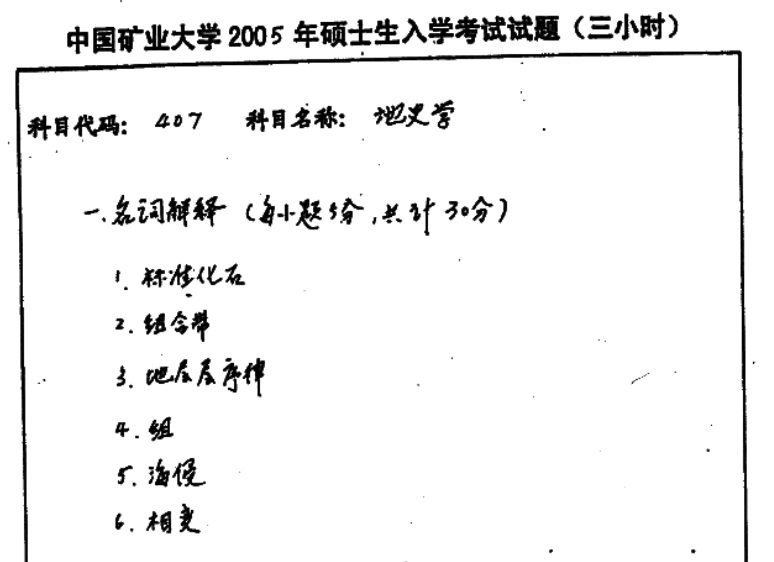 中国矿业大学2005年硕士生入学考试试题（三小时）
科目代码： 407 科目名称： 地史学
一.名词解释（每小题5分,共计30分）
1. 标准化石
2. 组合带
3. 地层层序律
4. 组
5. 海侵
6. 相变